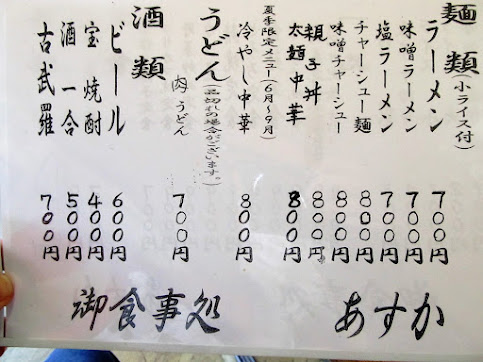 麺類(小ライス付)
ラーメン 700円
味噌ラーメン 700円
塩ラーメン 700円
チャーシュー麺 800円
味噌チャーシュー 800円
親子丼 800円
太麺中華 800円
夏季限定メニュー(6月~9月)
冷やし中華 800円
うどん(品切れの場合がございます。)
肉うどん 700円
酒類
ビール 600円
宝焼酎 400円
酒一合 500円
古武羅 700円
御食事処 あすか